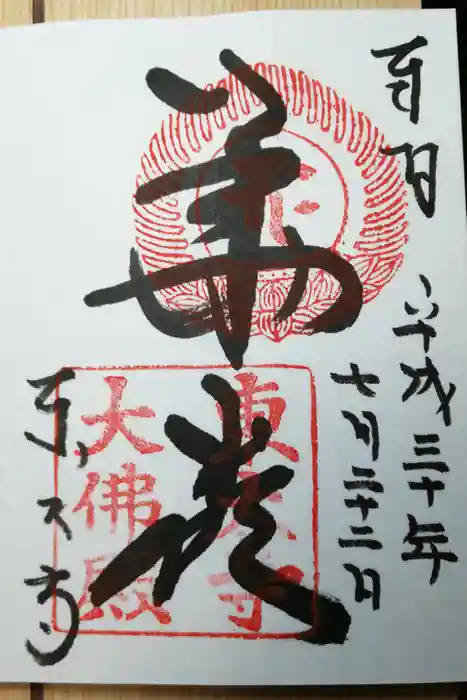 奉拝
平成三十年
七月二十二日
華厳
東大寺
大佛殿
東大寺